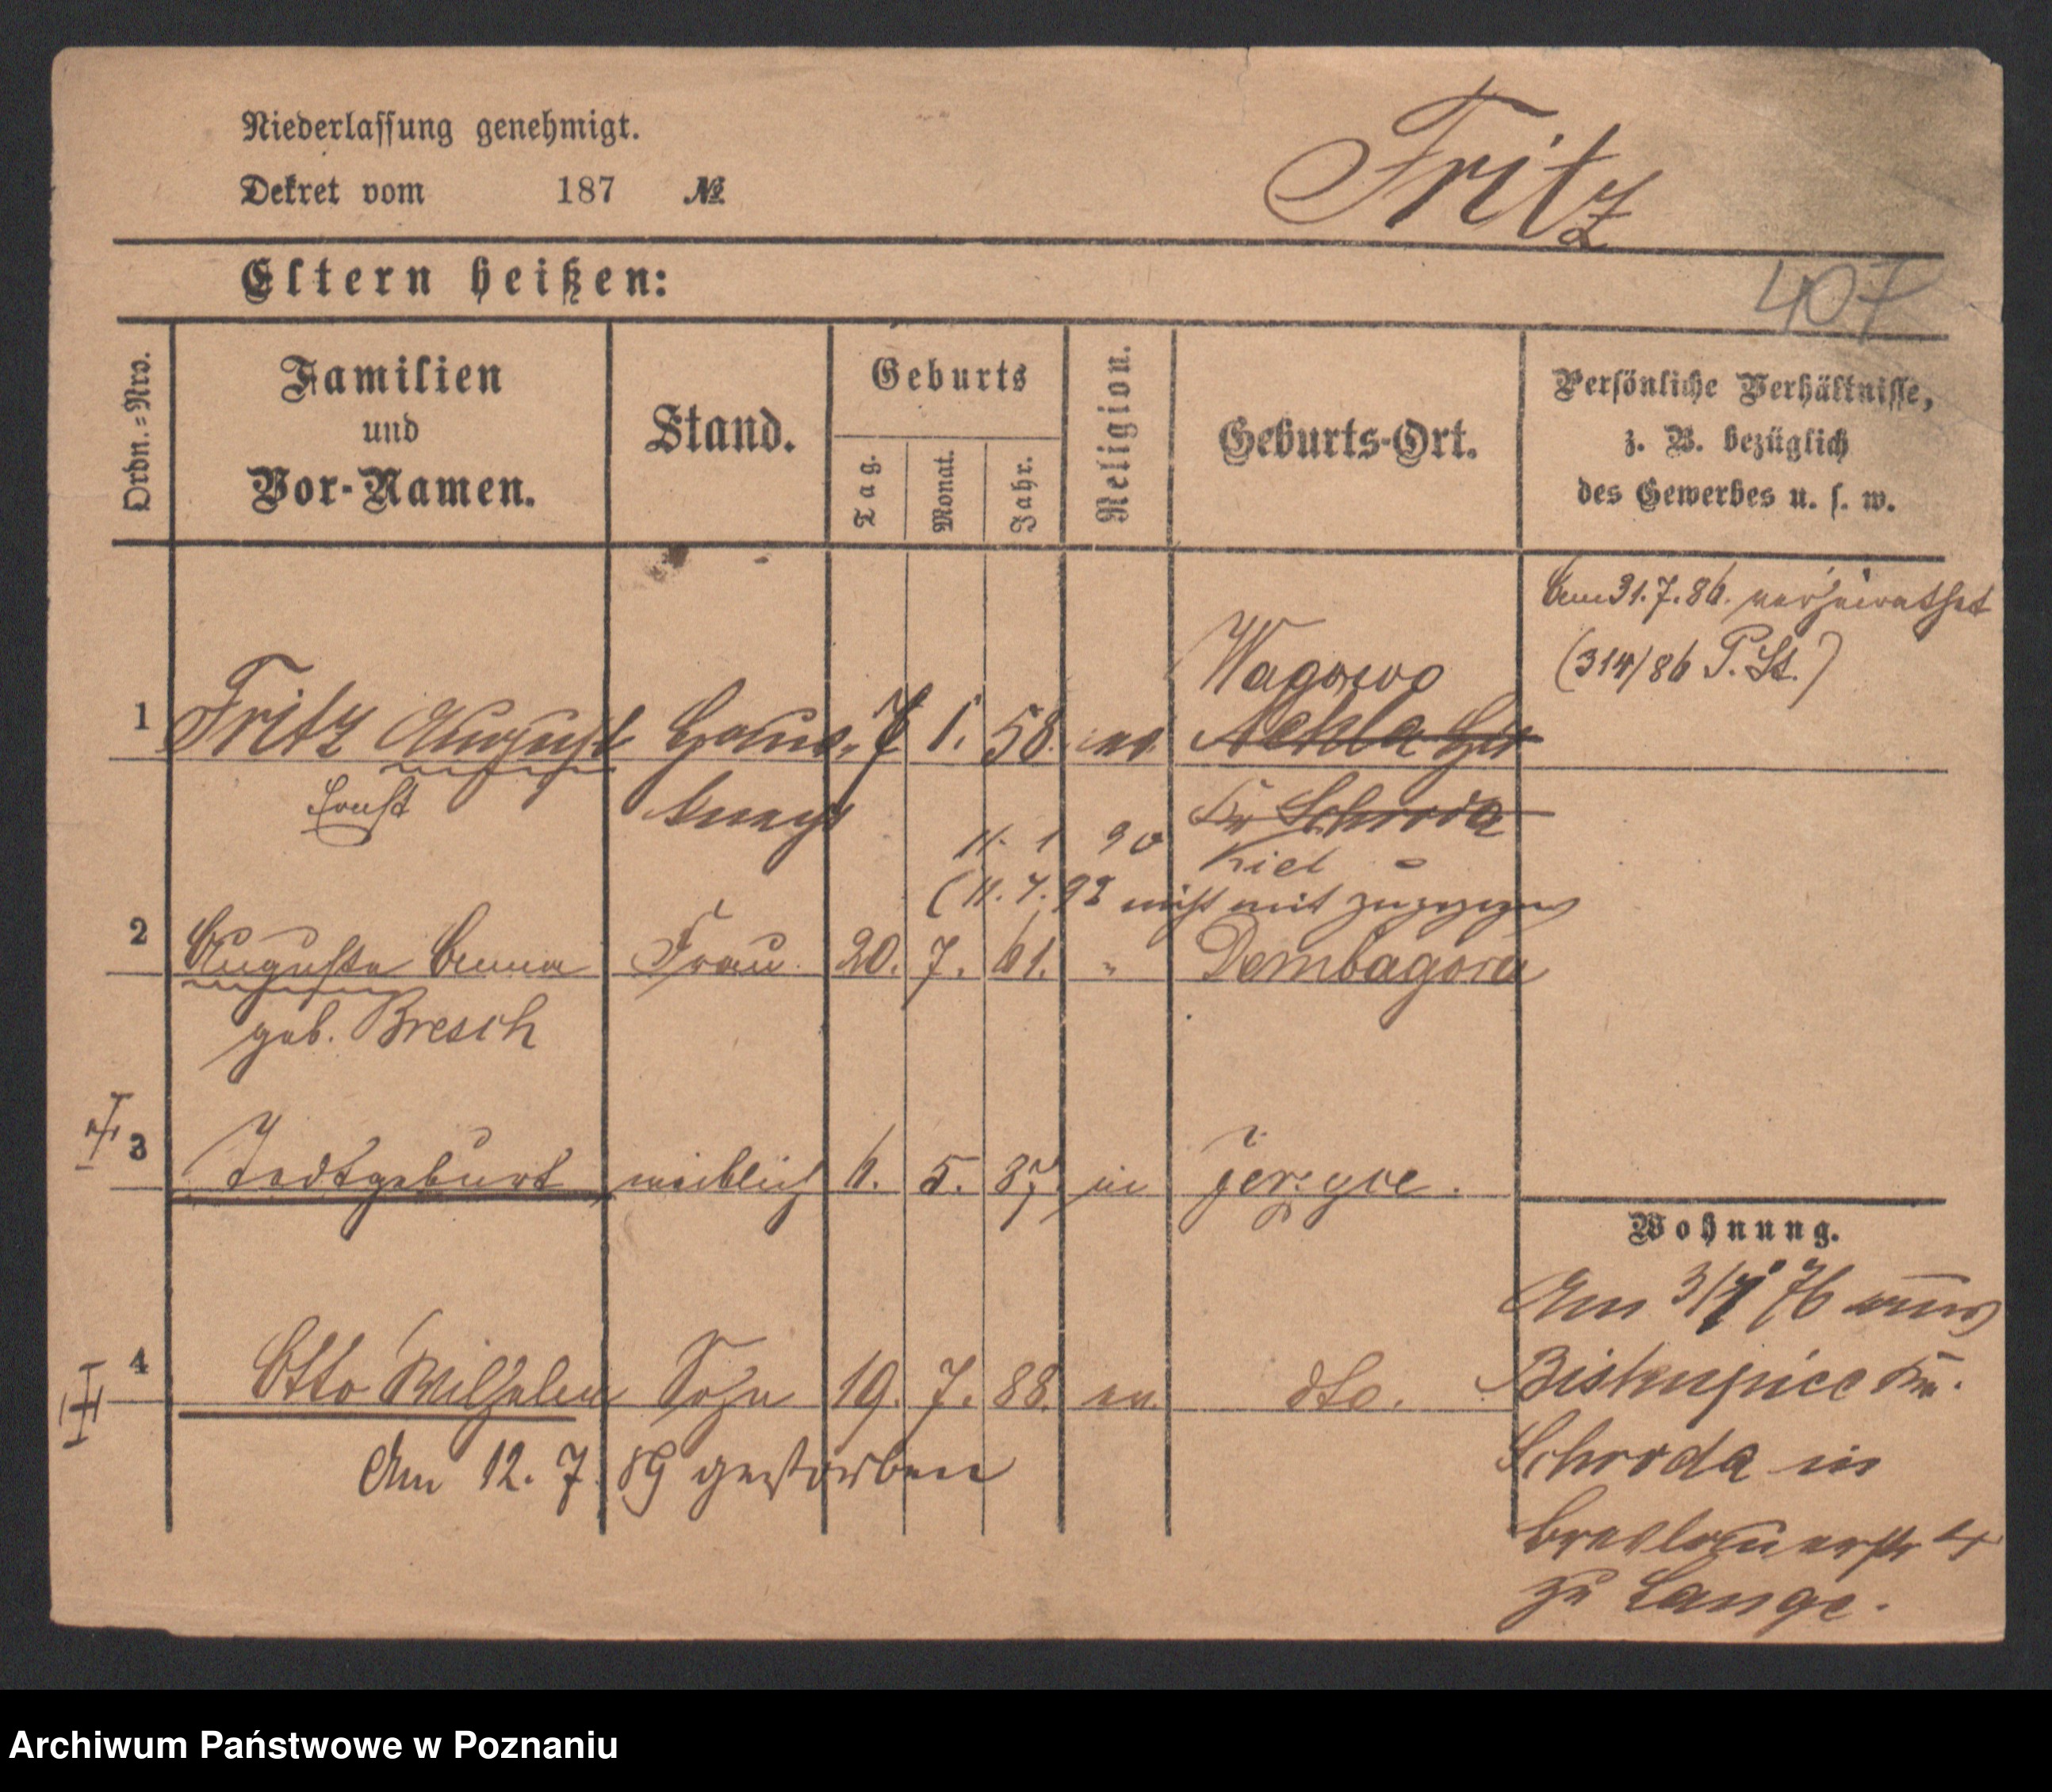 Niederlassung genehmigt.
Dekret vom 187 №
Fritz
Eltern heißen:
407
Ordn.=Nro.
Familien
und
Vor-Namen.
Stand.
Geburts
Tag.
Monat.
Jahr.
Religion.
Geburts-Ort.
Persönliche Verhältnisse,
z. B. bezüglich
des Gewerbes u. s. w.
Am 31.7.86. verheirathet
(314/86 P. St.)
Wagowo
1 Fritz August Haus- 7 1. 58. ev. Nekla
Ernst knecht Kr Schroda
11. 1 90 Kiel
(11. 7. 92 nicht mit zugezogen
2 Auguste Anna Frau 20. 7. 61. " Dembagora
geb. Bresch
3 Todtgeburt weiblich 6. 5. 87. in Jerzyce.
Wohnung.
Am 3/7 76 aus
4 Otto Wilhelm Sohn 19. 7. 88. ev. dto.
Kr.
Am 12. 7. 89 gestorben
Schroda in
Breslauerstr 4
zu Lange.
Archiwum Państwowe w Poznaniu